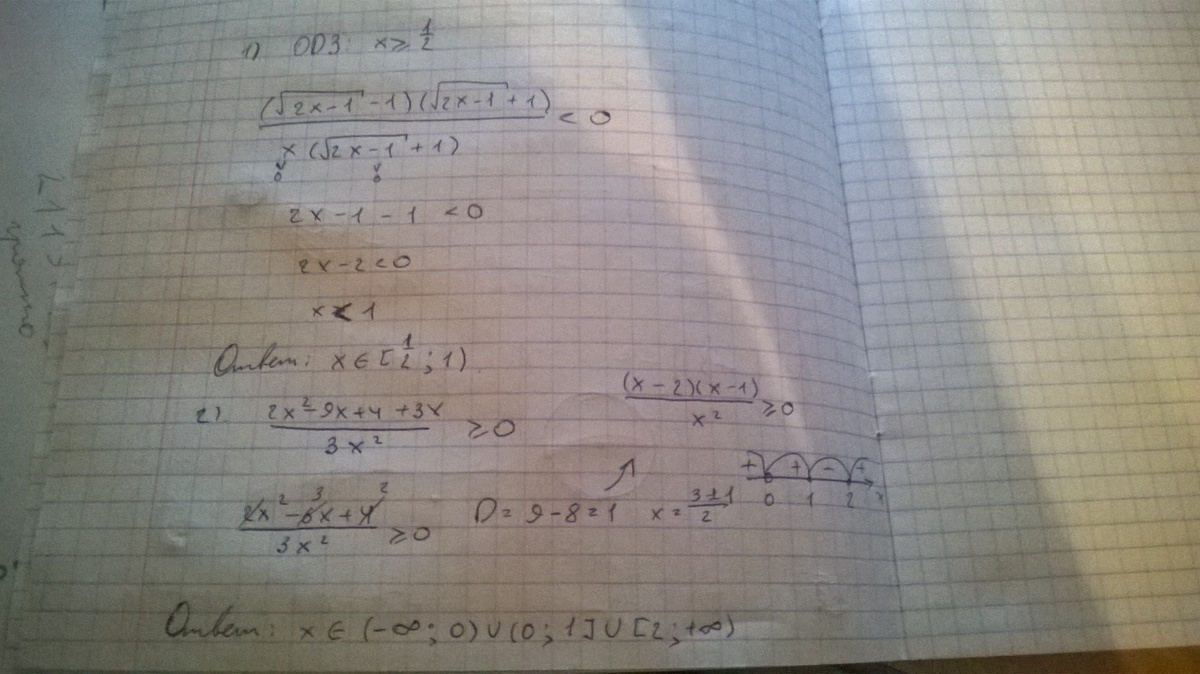 1) ОДЗ: x ≥ 1/2
(√2x-1 - 1)(√2x-1 + 1) / x(√2x-1 + 1) < 0
2x - 1 - 1 < 0
2x - 2 < 0
x < 1
Ответ: x ∈ [1/2; 1)
2). 2x² - 9x + 4 + 3x / 3x² ≥ 0
2x² - 6x + 4 / 3x² ≥ 0
3 2
D = 9 - 8 = 1 x = 3±1 / 2
(x - 2)(x - 1) / x² ≥ 0
+ + - +
0 1 2 x
Ответ: x ∈ (-∞; 0) ∪ (0; 1] ∪ [2; +∞)